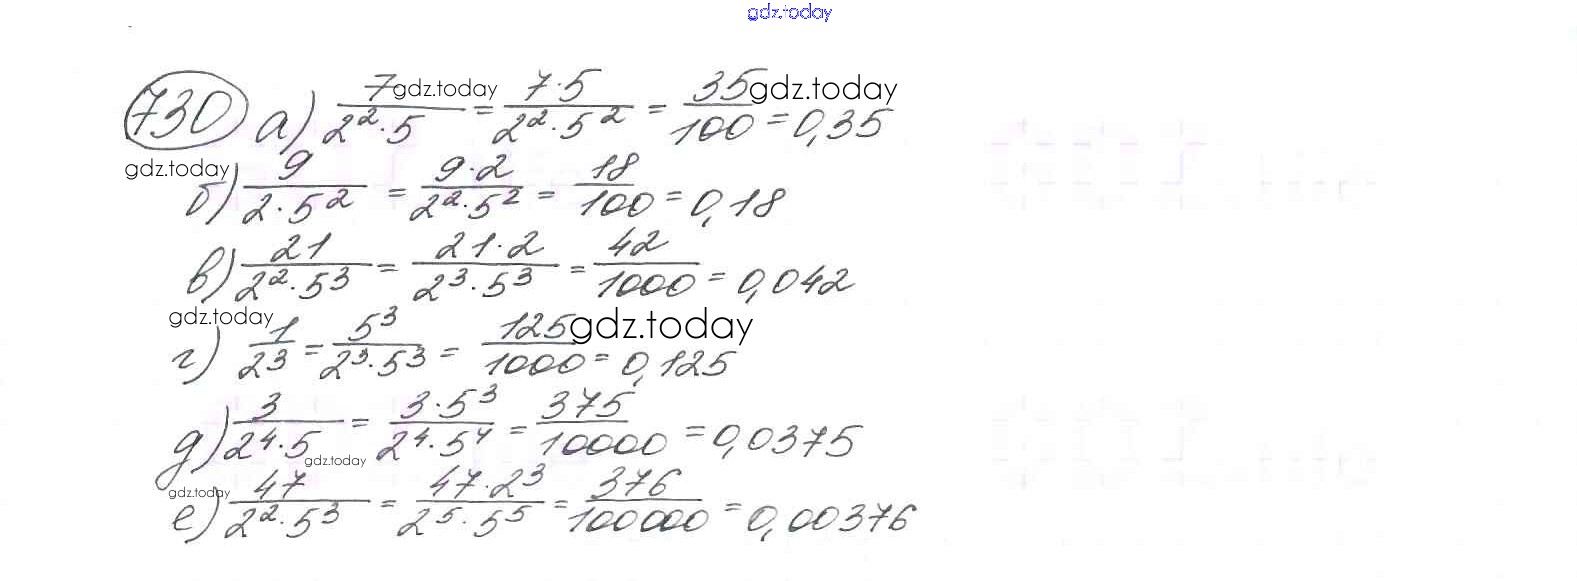 gdz.today
730 а) 7/(2²·5) = 7·5/(2²·5²) = 35/100 = 0,35
gdz.today gdz.today
gdz.today
б) 9/(2·5²) = 9·2/(2²·5²) = 18/100 = 0,18
в) 21/(2²·5³) = 21·2/(2³·5³) = 42/1000 = 0,042
gdz.today gdz.today
г) 1/2³ = 5³/(2³·5³) = 125/1000 = 0,125
д) 3/(2⁴·5) = 3·5³/(2⁴·5⁴) = 375/10000 = 0,0375
gdz.today
gdz.today
е) 47/(2²·5³) = 47·2³/(2⁵·5⁵) = 376/100000 = 0,00376